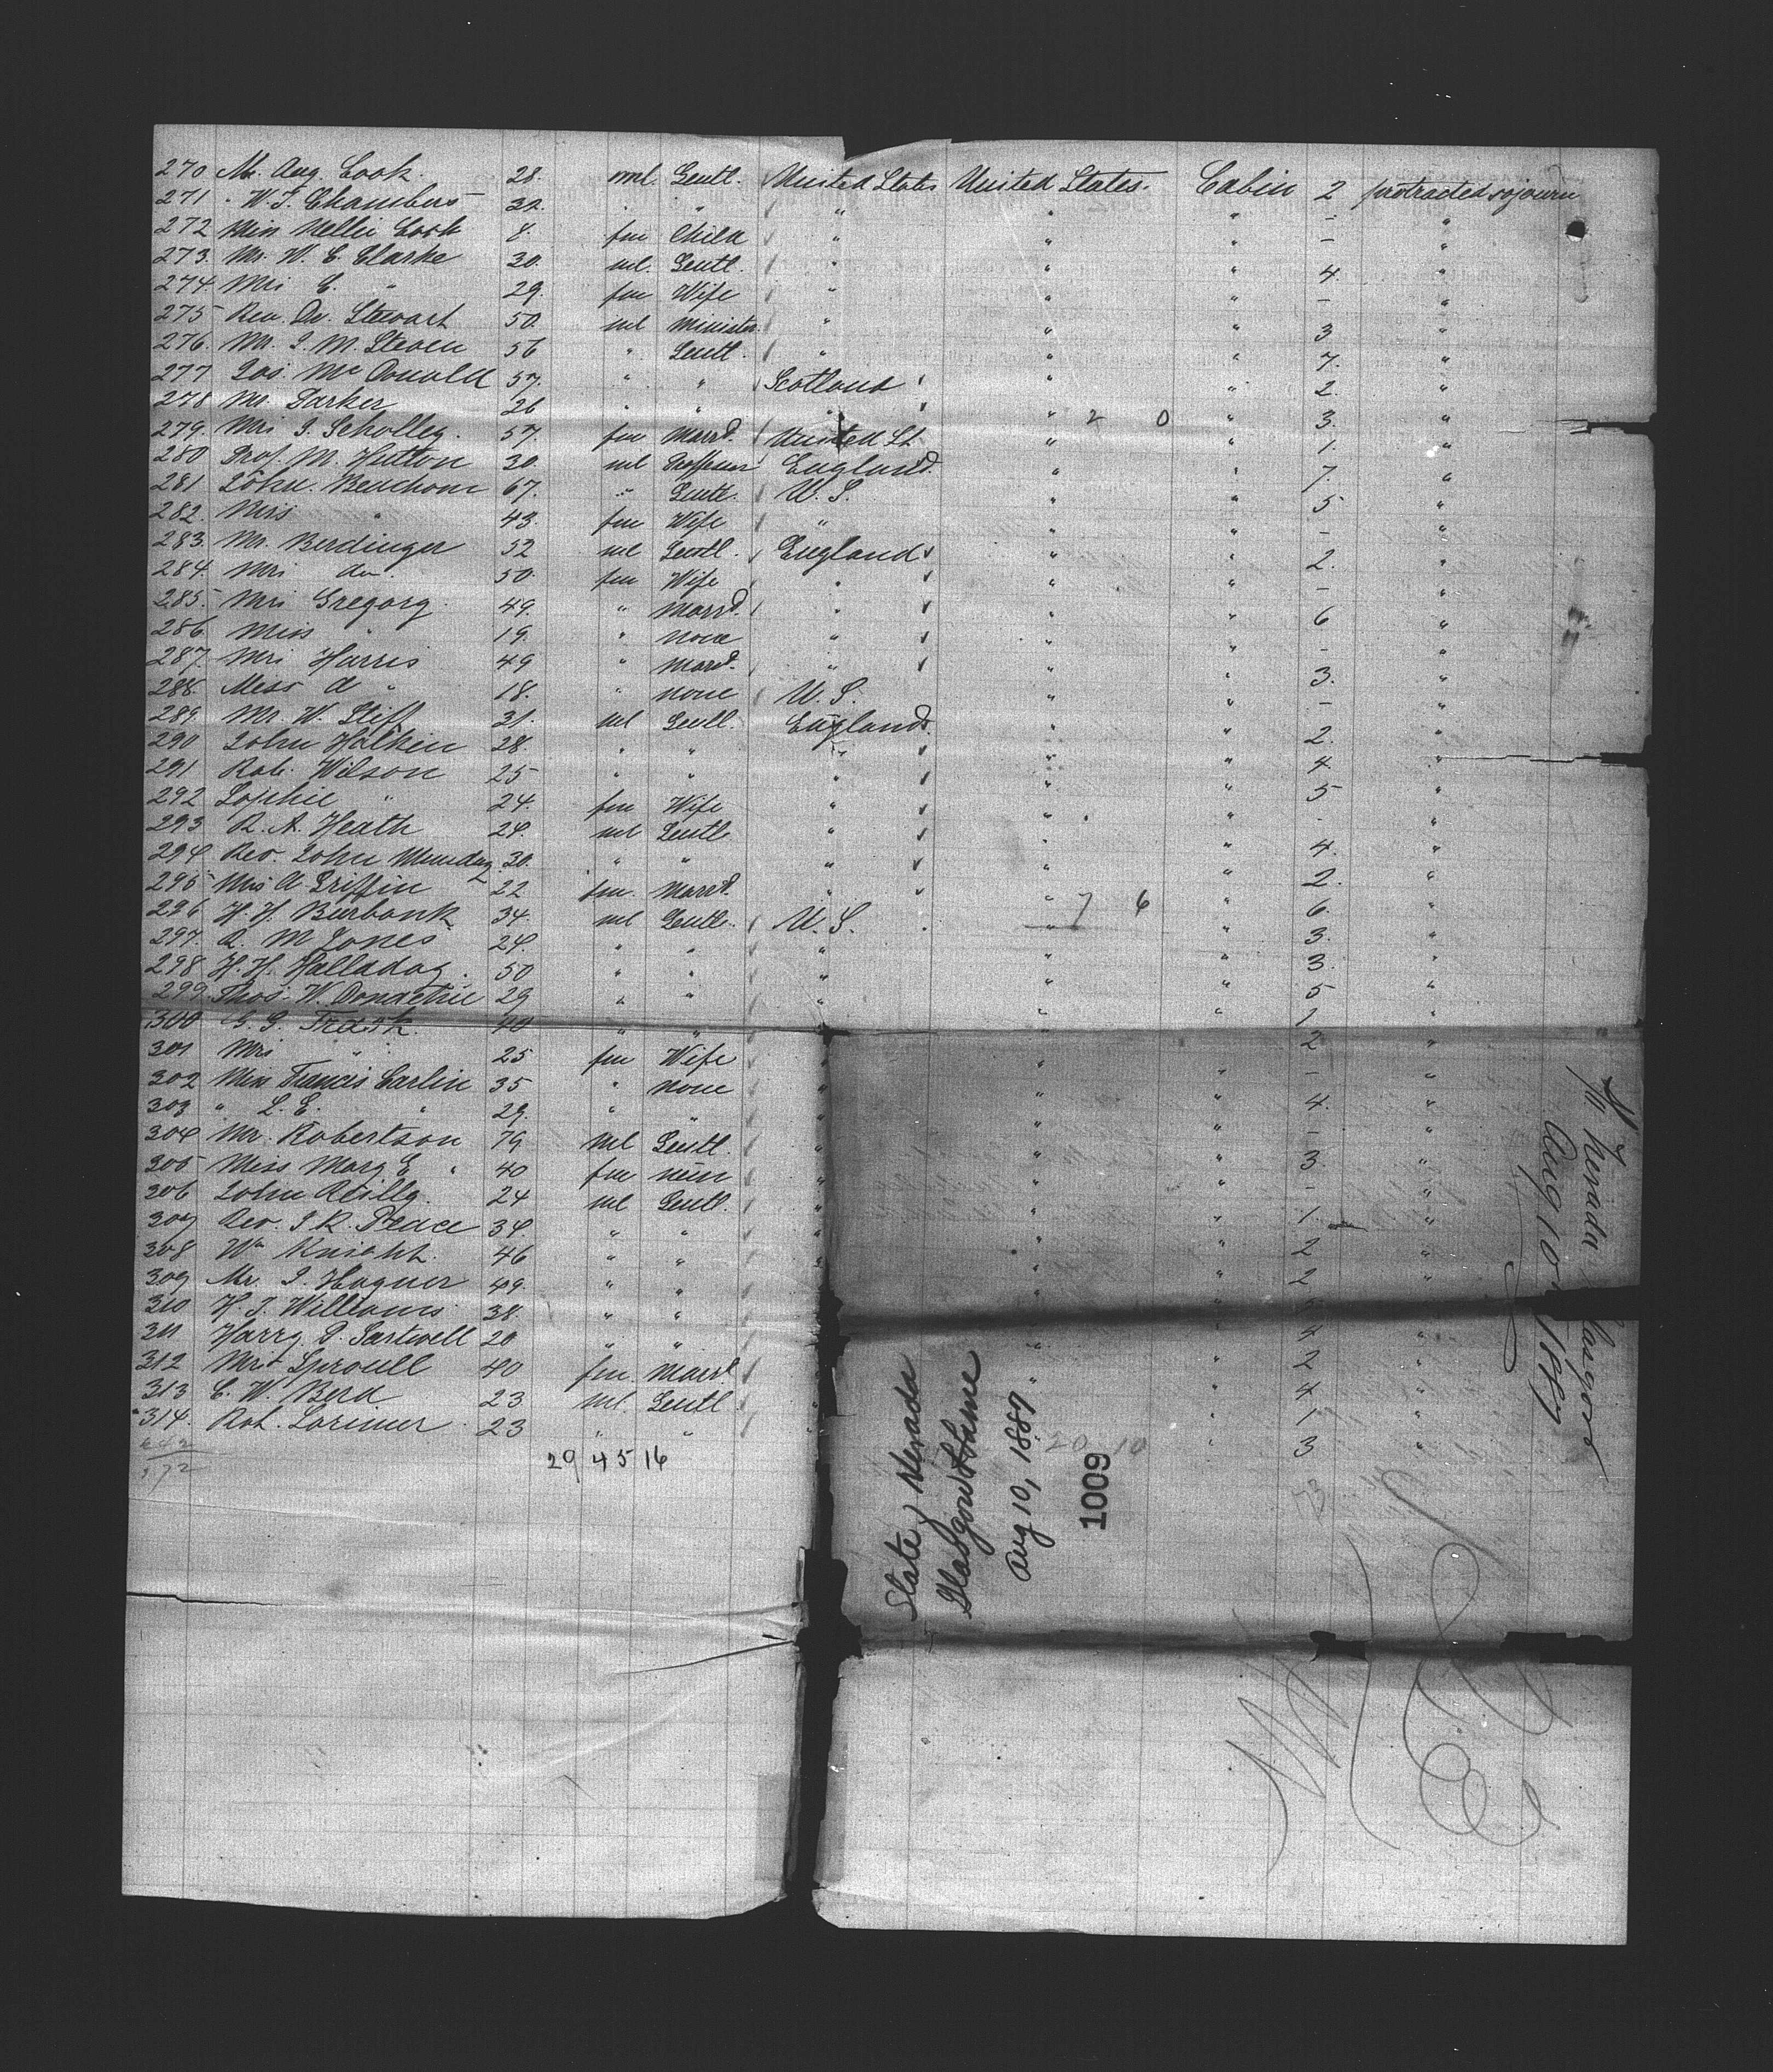 270 Mr. Aug. Cook. 28. ml. Gentl. United States United States. Cabin 2 protracted sojourn
271 " W. J. Chambers 32. " " " " " - "
272 Miss Nellie Cook 8. fm Child " " " - "
273. Mr. W. E. Clarke 30. ml. Gentl. " " " 4. "
274. Mrs E. " 29. fm Wife " " " - "
275 Rev. Dr. Stewart 50. ml Minister. " " " 3 "
276. Mr. J. M. Steven 56 " Gentl. " " " 7. "
277 Jas. McDonald 57. " " Scotland " " 2. "
278 Mr. Parker 26 " " " " 2 0 " 3. "
279. Mrs J. Scholley. 57. fm Marrd. United St. " " 1. "
280 Prof. M. Hutton 30. ml Professor England. " " 7. "
281 John. Beuchom 67. " Gentl. U. S. " " 5 "
282. Mrs " 43. fm Wife " " " - "
283. Mr. Berdinger 52 ml Gentl. England " " 2. "
284. Mrs do. 50. fm Wife " " " - "
285. Mrs Gregory. 49. " Marrd. " " " 6 "
286 Miss " 19. " none " " " - "
287. Mrs Harris 49 " Marrd. " " " 3. "
288. Miss A " 18. " none U. S. " " - "
289. Mr. W. Stiff 31. ml Gentl. England. " " 2. "
290 John Halkin 28. " " " " " 4. "
291 Rob. Wilson 25 " " " " " 5 "
292 Sophie " 24. fm Wife " " " - "
293 R. A. Heath 24. ml Gentl. " " " 4. "
294 Rev. John Munday 30. " " " " " 2. "
295 Mrs A Griffin 22 fm. Marrd. " " 7 6 " 6. "
296 H. H. Burbank 34. ml Gentl. U. S. " " 3. "
297. R. M Jones 24. " " " " " 3. "
298 H. H. Halladay. 50 " " " " " 5 "
299. Thos. W. 29 " " " " " 1 "
300 G. G. Trask. 40 " " " " 2 "
301 Mrs " 25 fm Wife " " " - "
302 Miss Francis Carlin 35 " none " " " 4. "
303 " L. E. " 29. " " " " " - "
304 Mr. Robertson 79 Ml Gentl. " " " 3. "
305 Miss Mary E " 40 fm " " " - "
306 John Reilly. 24 ml Gentl. " " " 1. "
307 Rev. J. R. Peace 34. " " " " 2 "
308 Wm Knight. 46 " " " " 2 "
309 Mr. J. Hagner 49. " " "
310 H. J. Williams 38. " "
311 Harry P. Sartwell 20 " " " 4 "
312 Mrs Sproull 40 fm. Marrd. " " 2 "
313 C. W. Berd 23 ml. Gentl. " 4 "
314. Rob. Lorimer 23 " " " 1 "
29 45 16 20 10 " 3
State of Nevada
Glasgow & Larne
Aug 10, 1887
1009
Nevada Glasgow
Aug 10 1887